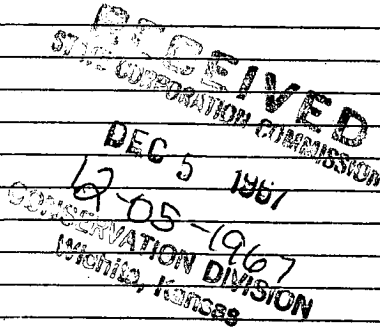 RECEIVED
STATE CORPORATION COMMISSION
DEC 5 1967
12-05-1967
CONSERVATION DIVISION
Wichita, Kansas